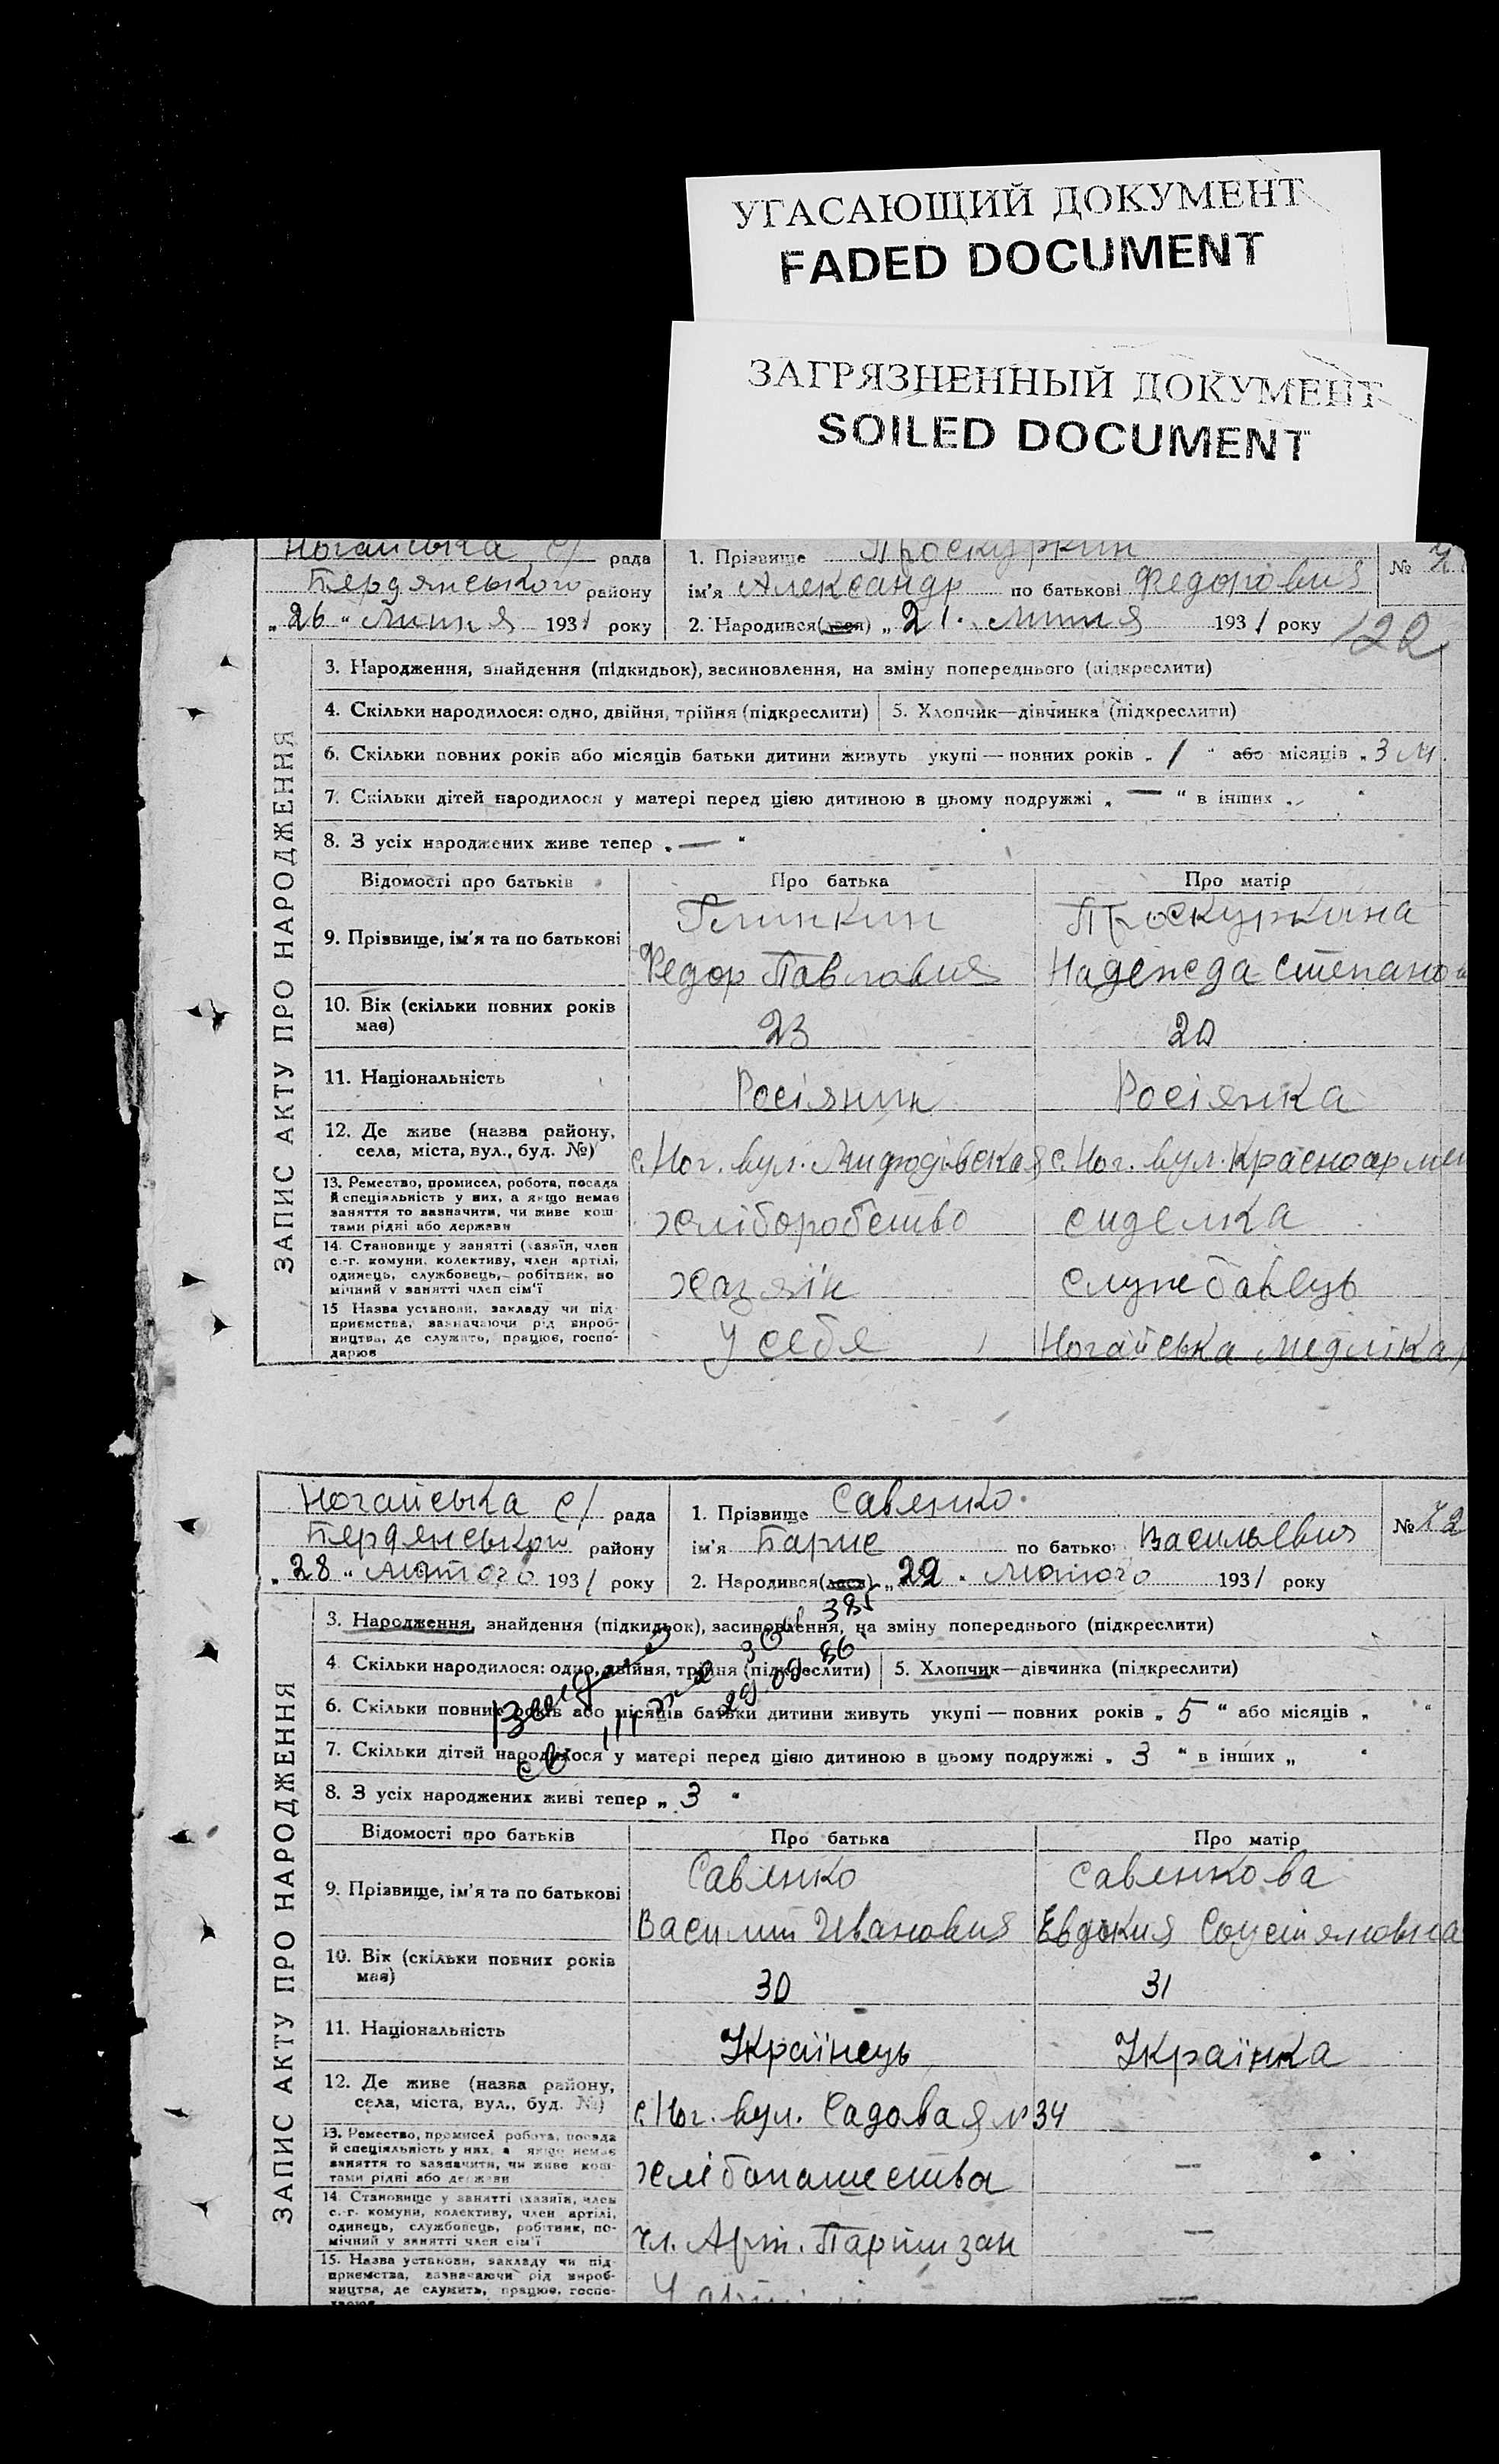 УГАСАЮЩИЙ ДОКУМЕНТ
FADED DOCUMENT
ЗАГРЯЗНЕННЫЙ ДОКУМЕНТ
SOILED DOCUMENT
Ногайська С/ рада
Бердянського району
„26“ Липня 1931 року
1. Прізвище Проскуркин
ім'я Александр по батькові Федорович
2. Народився(лася) „21. Липня 1931 року
№
122
ЗАПИС АКТУ ПРО НАРОДЖЕННЯ
3. Народження, знайдення (підкидьок), засиновлення, на зміну попереднього (підкреслити)
4. Скільки народилося: одно, двійня, трійня (підкреслити) 5. Хлопчик—дівчинка (підкреслити)
6. Скільки повних років або місяців батьки дитини живуть укупі — повних років „ 1 “ або місяців „ 3 м.
7. Скільки дітей народилося у матері перед цією дитиною в цьому подружжі „ — “ в інших „
8. З усіх народжених живе тепер „ — “
Відомості про батьків Про батька Про матір
9. Прізвище, ім'я та по батькові
Глинкин
Федор Павлович
Проскуркина
Надежда Степано
10. Вік (скільки повних років має)
23 20
11. Національність Росіянин Росіянка
12. Де живе (назва району,
села, міста, вул., буд. №)
с. Ног. вул. Мифодівская с. Ног. вул. Красноармей
13. Ремество, промисел, робота, посада
й спеціяльність у них, а якщо немає
заняття то зазначити, чи живе кош-
тами рідні або держави
хліборобство сиделка
14. Становище у занятті (хазяїн, член
с.-г. комуни, колективу, член артілі,
одинець, службовець, робітник, по
мічний у занятті член сім'ї
хазяїн службовець
15 Назва установи, закладу чи під-
приємства, зазначаючи рід вироб-
ництва, де служить, працює, госпо-
дарює
У себя Ногайська медліка
Ногайська С/ рада
Бердянського району
„28“ Лютого 1931 року
1. Прізвище Савенко.
ім'я Барис по батько Васильевич
2. Народився(лася) „22. Лютого 1931 року
№ 72
ЗАПИС АКТУ ПРО НАРОДЖЕННЯ
3. Народження, знайдення (підкидьок), засиновлення, на зміну попереднього (підкреслити)
4 Скільки народилося: одно, двійня, трійня (підкреслити) 5. Хлопчик—дівчинка (підкреслити)
6. Скільки повних років або місяців батьки дитини живуть укупі — повних років „ 5 “ або місяців „ “
7. Скільки дітей народилося у матері перед цією дитиною в цьому подружжі „ 3 “ в інших „ “
8. З усіх народжених живі тепер „ 3 “
Відомості про батьків Про батька Про матір
9. Прізвище, ім'я та по батькові
Савенко
Василий Иванович
Савенкова
Евдокия
10. Вік (скільки повних років
має)
30 31
11. Національність Українець Українка
12. Де живе (назва району,
села, міста, вул., буд. №)
с. Ног. вул. Садовая № 34
13. Ремество, промисел робота, посада
й спеціяльність у них, а якщо немає
заняття то зазначити, чи живе кош-
тами рідні або держави
хлібопашества —
14. Становище у занятті (хазяїн, член
с.-г. комуни, колективу, член артілі,
одинець, службовець, робітник, по-
мічний у занятті член сім'ї
чл. Арт. Партизан —
15. Назва установи, закладу чи під-
приємства, зазначаючи рід вироб-
ництва, де служить, працює, госпо-